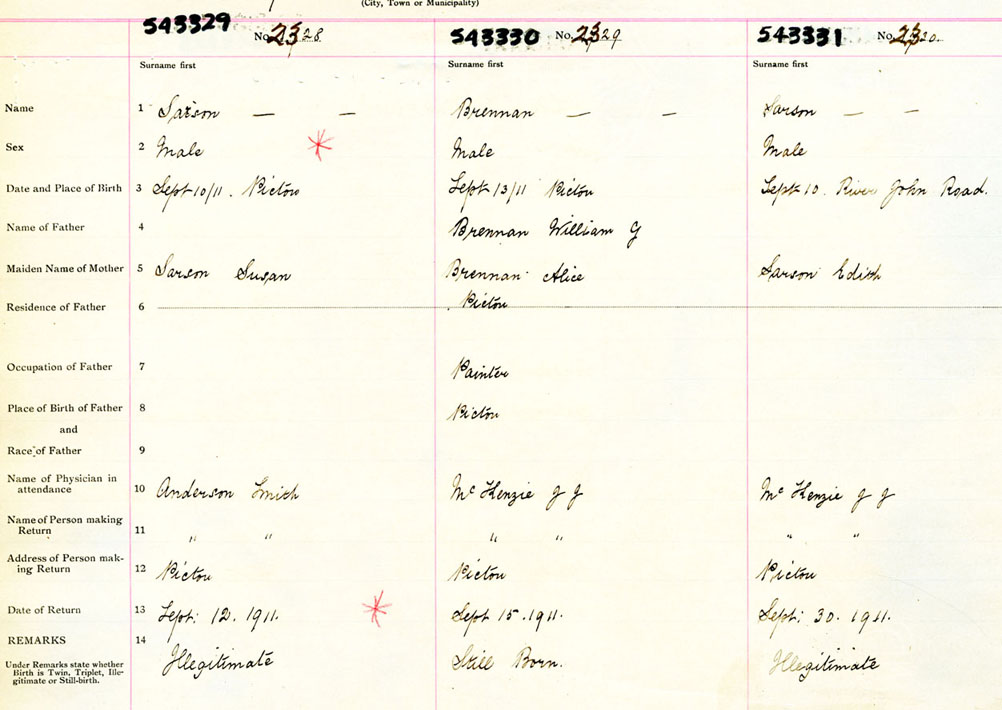 (City, Town or Municipality)
543329 No. 2328 543330 No. 2329 543331 No. 2330
Surname first Surname first Surname first
Name 1 Sarson — — Brennan — — Sarson — —
Sex 2 Male Male Male
Date and Place of Birth 3 Sept 10/11. Pictou Sept 13/11 Pictou Sept 10. River John Road.
Name of Father 4 Brennan William G
Maiden Name of Mother 5 Sarson Susan Brennan Alice Sarson Edith
Residence of Father 6 Pictou
Occupation of Father 7 Painter
Place of Birth of Father 8 Pictou
and
Race of Father 9
Name of Physician in
attendance 10 Anderson Smith Mc Kenzie J J Mc Kenzie J J
Name of Person making
Return 11 " " " " " "
Address of Person mak-
ing Return 12 Pictou Pictou Pictou
Date of Return 13 Sept: 12. 1911. Sept 15. 1911. Sept: 30. 1911.
REMARKS 14
Under Remarks state whether
Birth is Twin, Triplet, Ille-
gitimate or Still-birth.
Illegitimate Still Born. Illegitimate